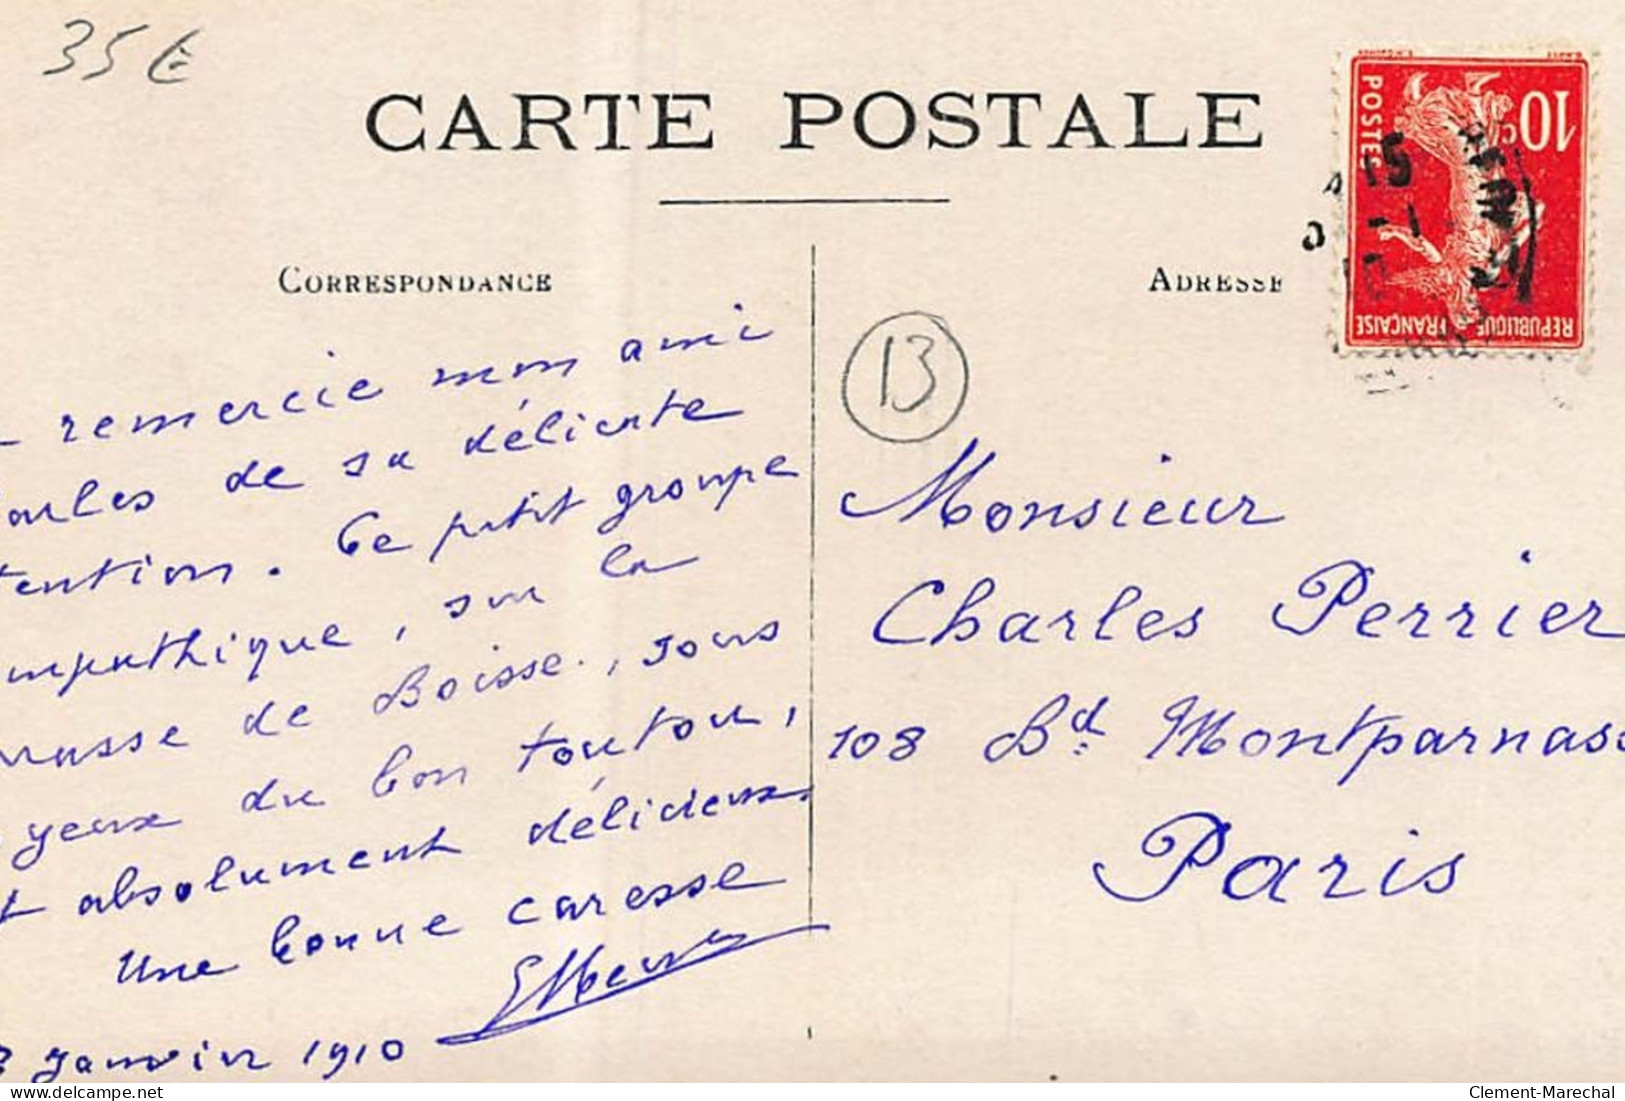 35€
CARTE POSTALE
CORRESPONDANCE
ADRESSE
10c
POSTES
REPUBLIQUE FRANÇAISE
13
remercie mon ami
arles de sa délicate
tention. Ce petit groupe
mpathique, sur la
de Boisse., sous
yeux du bon toutou,
t absolument délicieux.
Une bonne caresse
janvier 1910
Monsieur
Charles Perrier
108 Bd. Montparnass
Paris
delcampe.net
Clement-Marechal